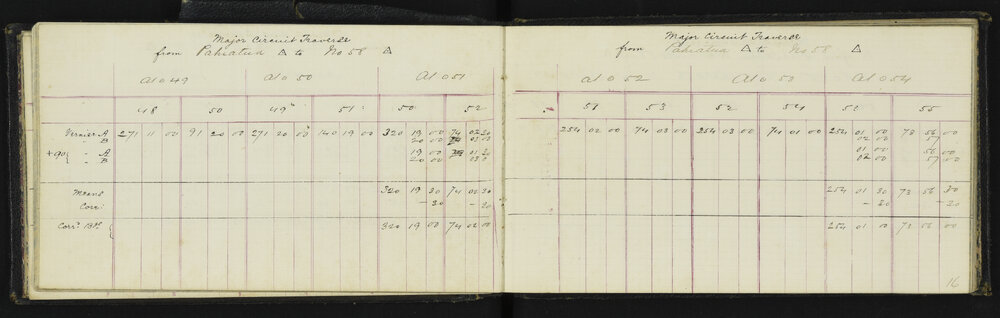 Major Circuit Traverse
from Pahiatua △ to No 58 △
At o 49 At o 50 At o 51
48 50 49 51 50 52
Vernier A 271 11 00 91 20 00 271 20 00 140 19 00 320 19 00 74 02 30
" B 20 00 03 00
+90 { " A 19 00 01 30
" B 20 00
Means 320 19 30 74 02 30
Corr: – 30 – 30
Corrd. Brg { 320 19 00 74 02 00
Major Circuit Traverse
from Pahiatua △ to No 58 △
At o 52 At o 53 At o 54
51 53 52 54 53 55
254 02 00 74 03 00 254 03 00 74 01 00 254 01 00 73 56 00
02 00 57
01 00 56 00
02 00 57 00
254 01 30 73 56 30
– 30 – 30
254 01 00 73 56 00
16